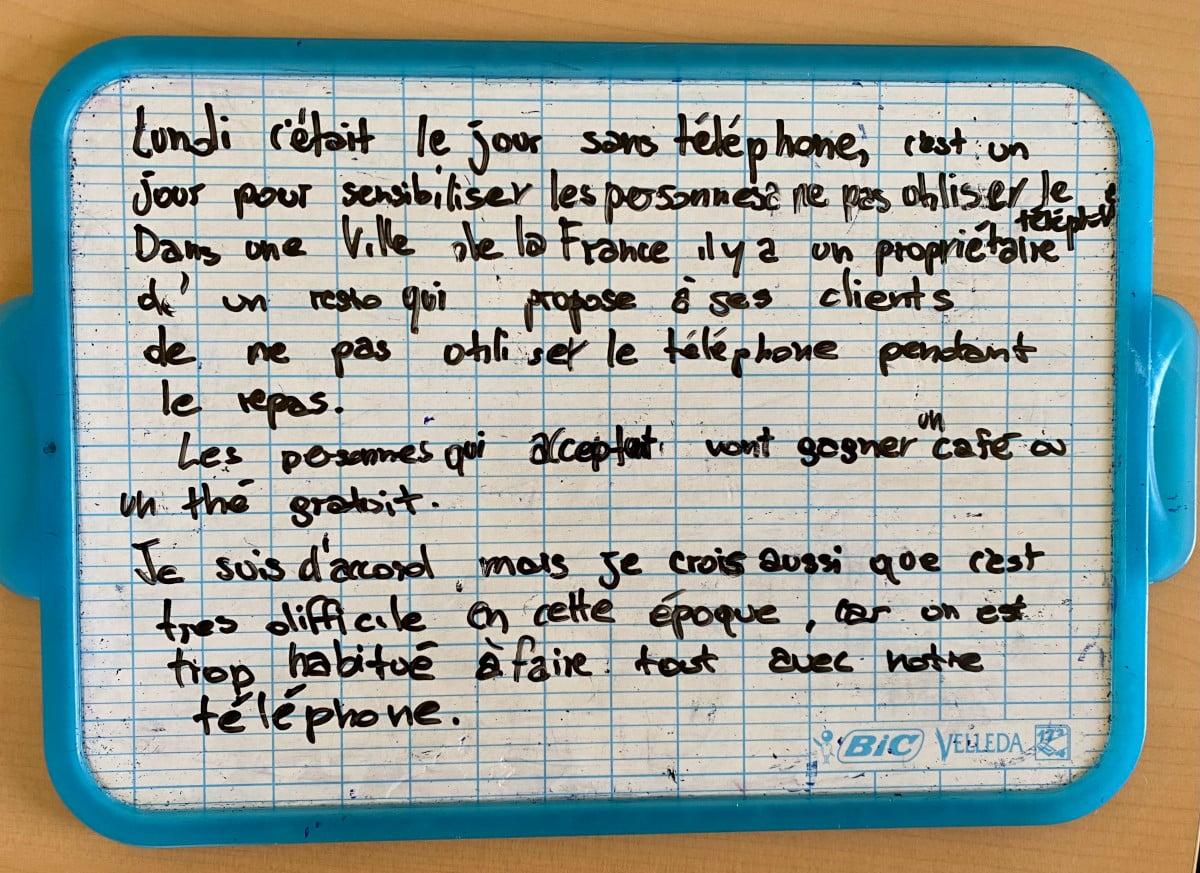 Lundi c'était le jour sans téléphone, c'est un
jour pour sensibiliser les personnes à ne pas utiliser le
téléph
Dans une Ville de la France il y a un propriétaire
d'un resto qui propose à ses clients
de ne pas utiliser le téléphone pendant
le repas.
un
Les personnes qui acceptent vont gagner café ou
un thé gratuit.
Je suis d'accord mais je crois aussi que c'est
tres difficile en cette époque, car on est
trop habitué à faire tout avec notre
téléphone.
BIC VELLEDA